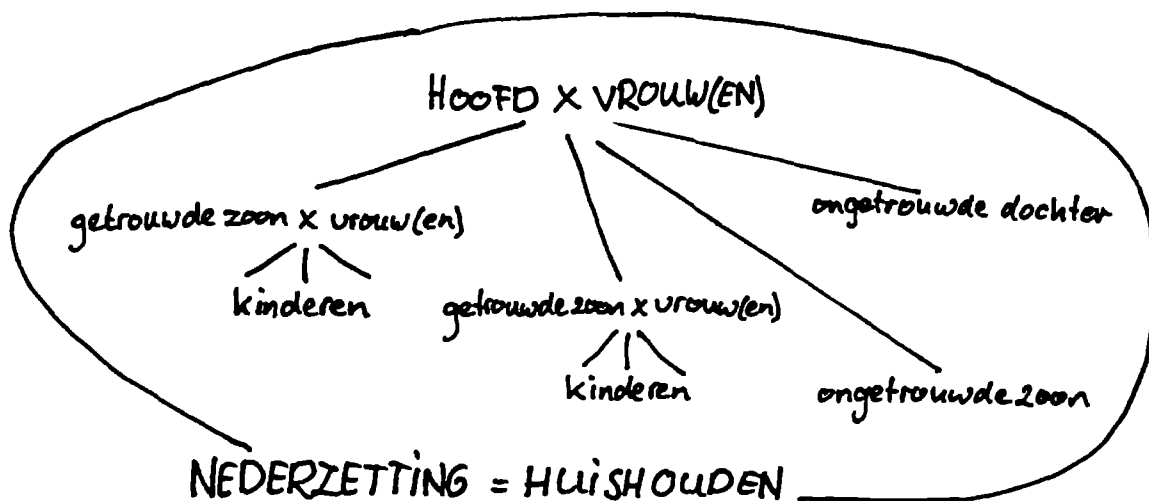 HOOFD X VROUW(EN)
ongetrouwde dochter
getrouwde zoon x vrouw(en)
kinderen
getrouwde zoon x vrouw(en)
kinderen
ongetrouwde zoon
NEDERZETTING = HUISHOUDEN